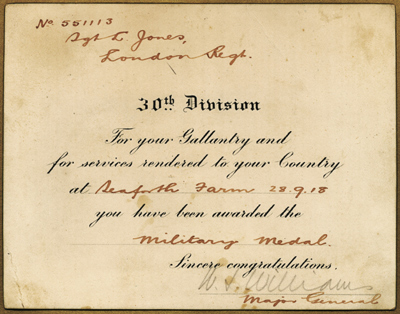 No 551113
Sgt L Jones,
London Regt.
30th Division
For your Gallantry and
for services rendered to your Country
at Seaforth Farm 28.9.18
you have been awarded the
Military Medal.
Sincere congratulations.
W. Williams
Major General